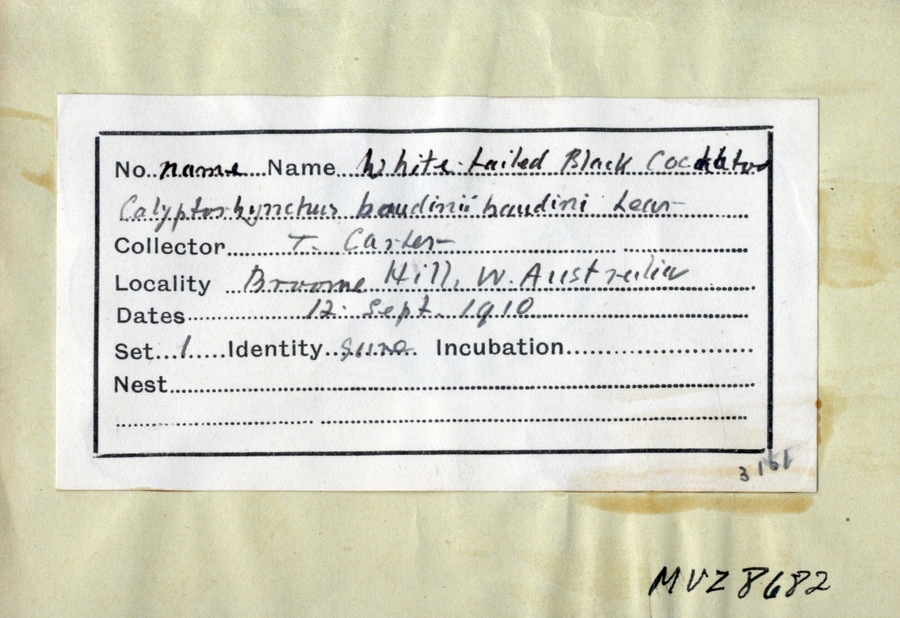 No. name Name White-tailed Black Cockatoo
Calyptorhynchus baudinii baudini Lear
Collector T. Carter
Locality Broome Hill, W. Australia
Dates 12. Sept. 1910
Set 1 Identity sure Incubation
Nest
3161
MVZ 8682